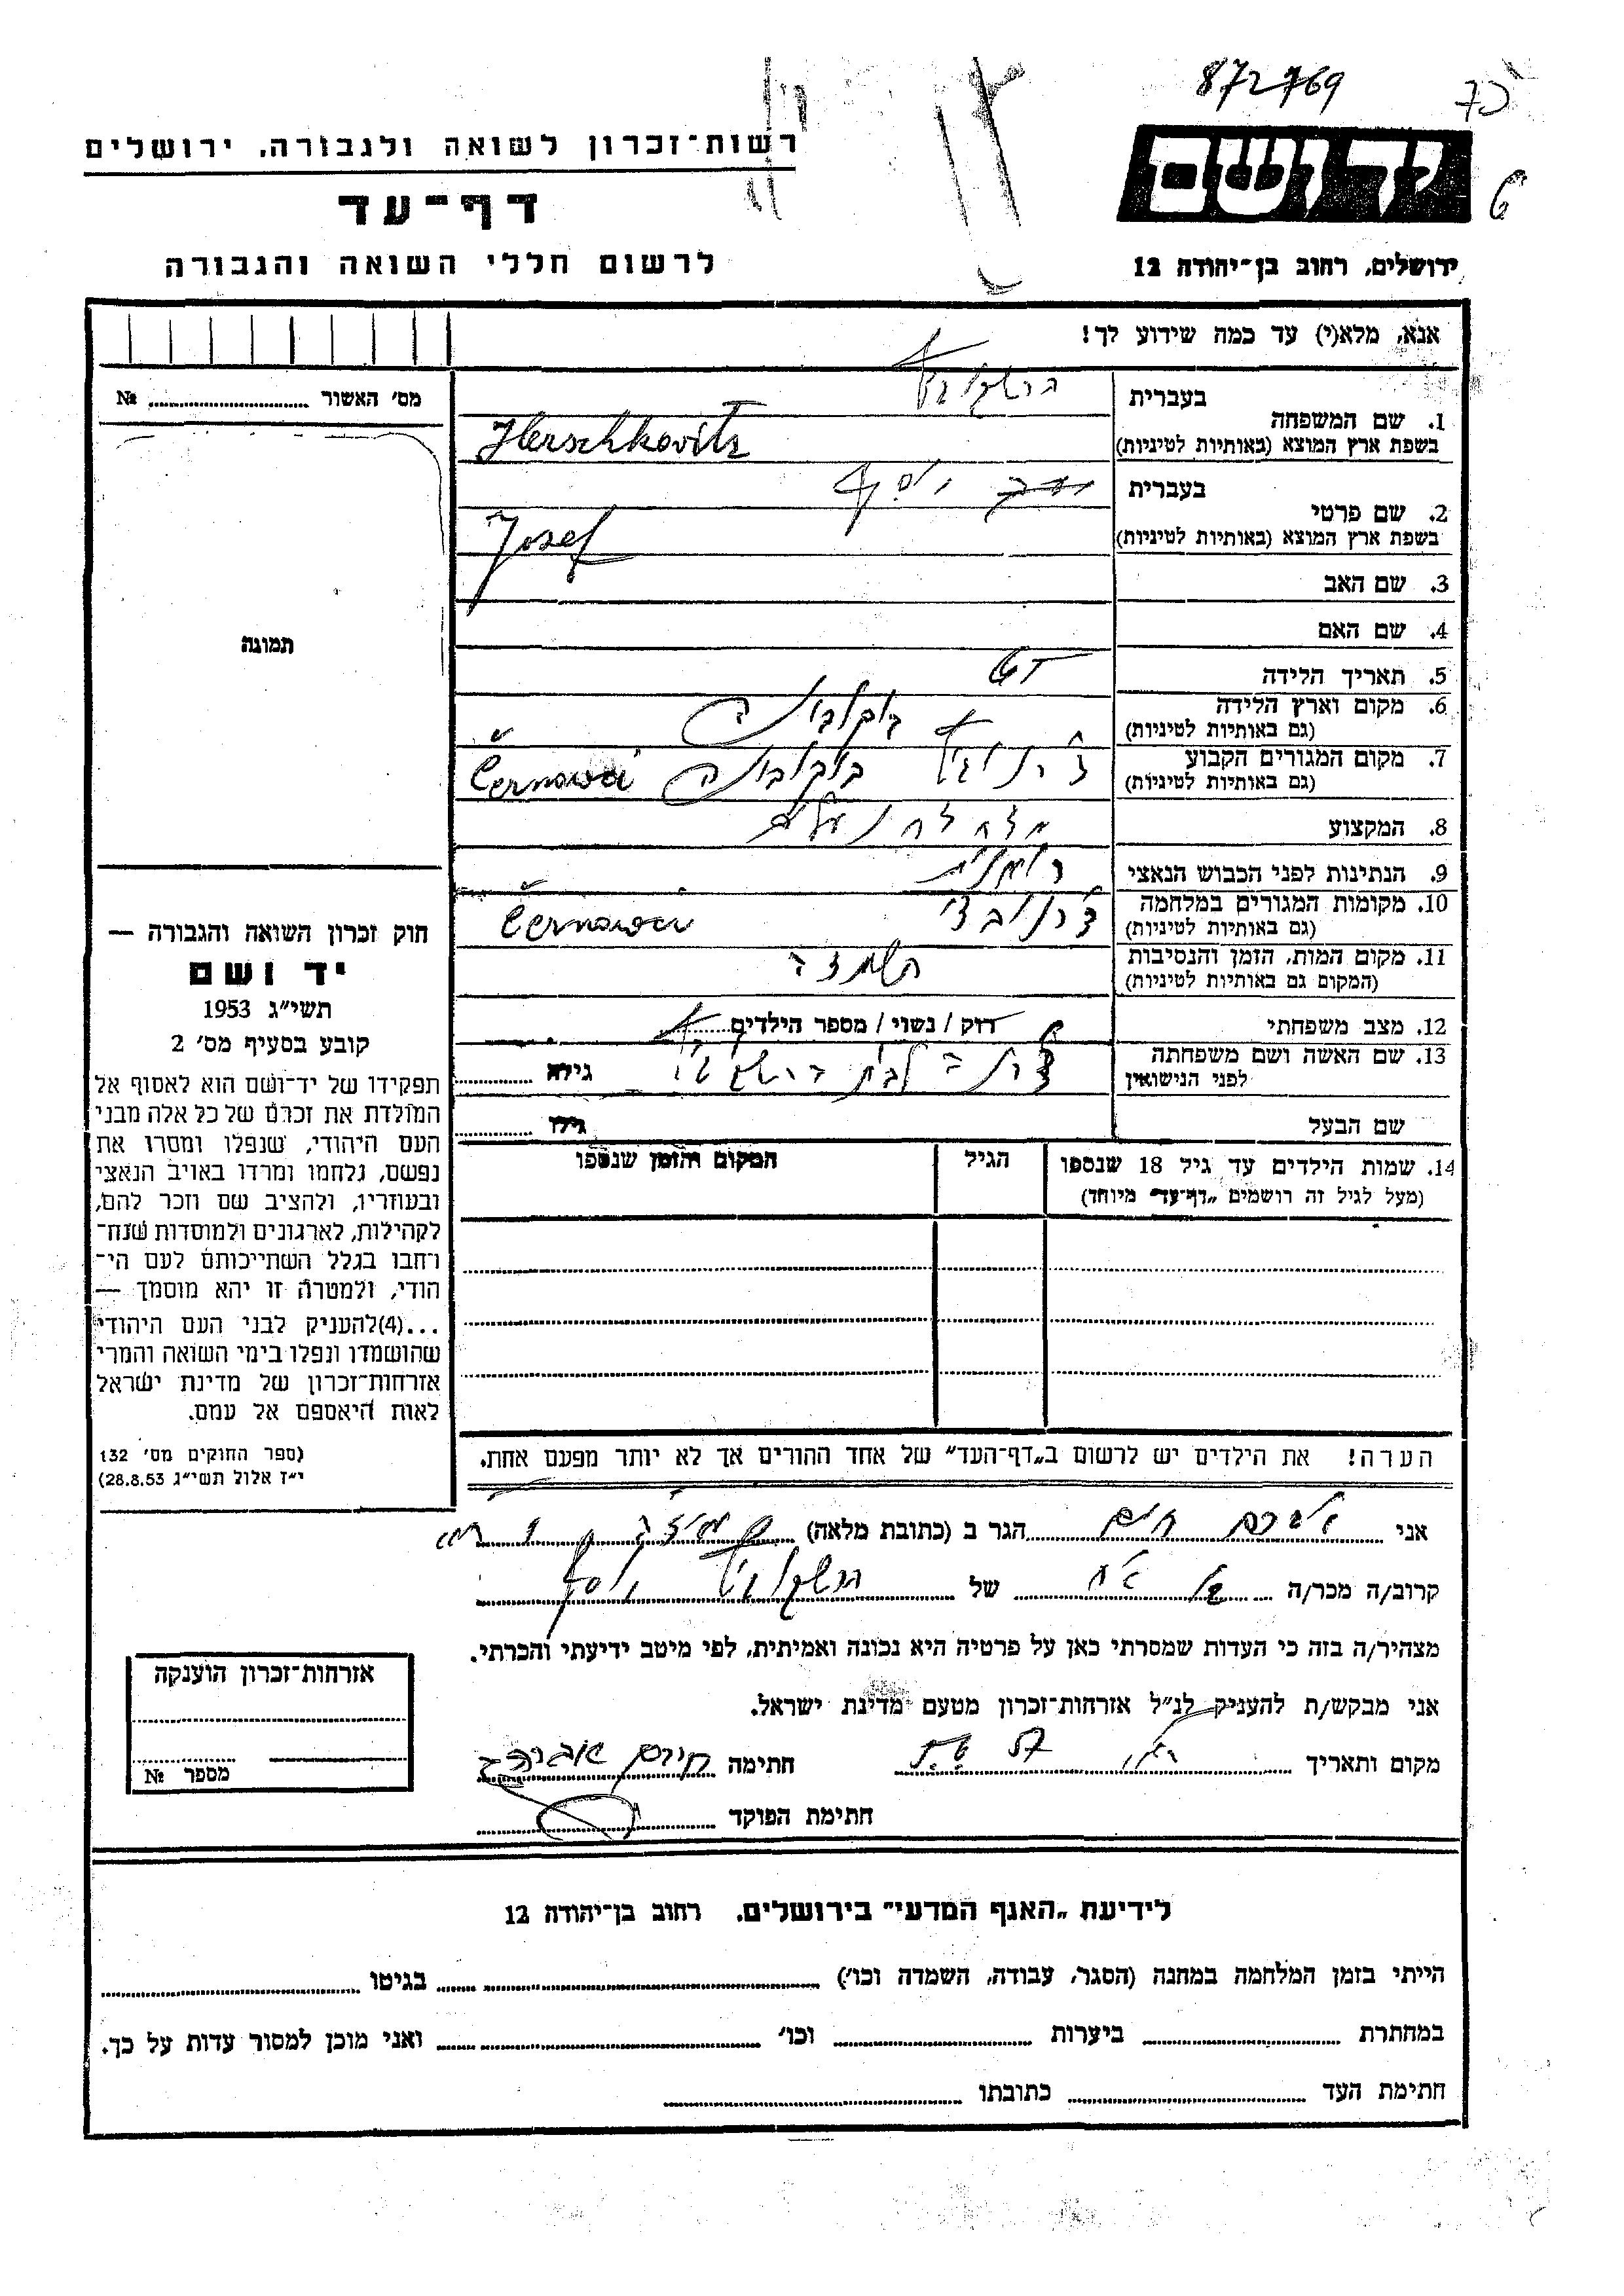 872769
רשות־זכרון לשואה ולגבורה, ירושלים
יד ושם
דף־עד
לרשום חללי השואה והגבורה
ירושלים, רחוב בן־יהודה 12
אנא, מלא(י) עד כמה שידוע לך!
מס׳ האשור № 
בעברית הרשקוביץ
1. שם המשפחה
בשפת ארץ המוצא (באותיות לטיניות) Herschkovits
בעברית יוסף
2. שם פרטי
בשפת ארץ המוצא (באותיות לטיניות) Josef
3. שם האב
4. שם האם
תמונה
5. תאריך הלידה
6. מקום וארץ הלידה בוקובינה
(גם באותיות לטיניות)
7. מקום המגורים הקבוע צ׳רנוביץ בוקובינה Černowai
(גם באותיות לטיניות)
8. המקצוע
9. הנתינות לפני הכבוש הנאצי רומנית
10. מקומות המגורים במלחמה צ׳רנוביצי Černowai
(גם באותיות לטיניות)
11. מקום המות, הזמן והנסיבות השמדה
(המקום גם באותיות לטיניות)
12. מצב משפחתי רוק / נשוי / מספר הילדים
13. שם האשה ושם משפחתה לבית גילה
לפני הנישואין
שם הבעל גילו
14. שמות הילדים עד גיל 18 שנספו הגיל המקום והזמן שנספו
(מעל לגיל זה רושמים „דף־עד״ מיוחד)
חוק זכרון השואה והגבורה —
יד ושם
תשי״ג 1953
קובע בסעיף מס׳ 2
תפקידו של יד־ושם הוא לאסוף אל
המולדת את זכרם של כל אלה מבני
העם היהודי, שנפלו ומסרו את
נפשם, נלחמו ומרדו באויב הנאצי
ובעוזריו, ולהציב שם וזכר להם,
לקהילות, לארגונים ולמוסדות שנח־
רחבו בגלל השתייכותם לעם הי־
הודי, ולמטרה זו יהא מוסמך —
...(4)להעניק לבני העם היהודי
שהושמדו ונפלו בימי השואה והמרי
אזרחות־זכרון של מדינת ישראל
לאות היאספם אל עמם.
(ספר החוקים מס׳ 132
י״ז אלול תשי״ג 28.8.53)
הערה! את הילדים יש לרשום ב„דף־העד״ של אחד ההורים אך לא יותר מפעם אחת.
אני חיים הגר ב (כתובת מלאה)
קרוב/ה מכר/ה של הרשקוביץ יוסף
מצהיר/ה בזה כי העדות שמסרתי כאן על פרטיה היא נכונה ואמיתית, לפי מיטב ידיעתי והכרתי.
אני מבקש/ת להעניק לנ״ל אזרחות־זכרון מטעם מדינת ישראל.
מקום ותאריך חתימה חיים
חתימת הפוקד
אזרחות־זכרון הוענקה
מספר №
לידיעת „האגף המדעי״ בירושלים, רחוב בן־יהודה 12
הייתי בזמן המלחמה במחנה (הסגר, עבודה, השמדה וכו׳) בגיטו
במחתרת ביערות וכו׳ ואני מוכן למסור עדות על כך.
חתימת העד כתובתו